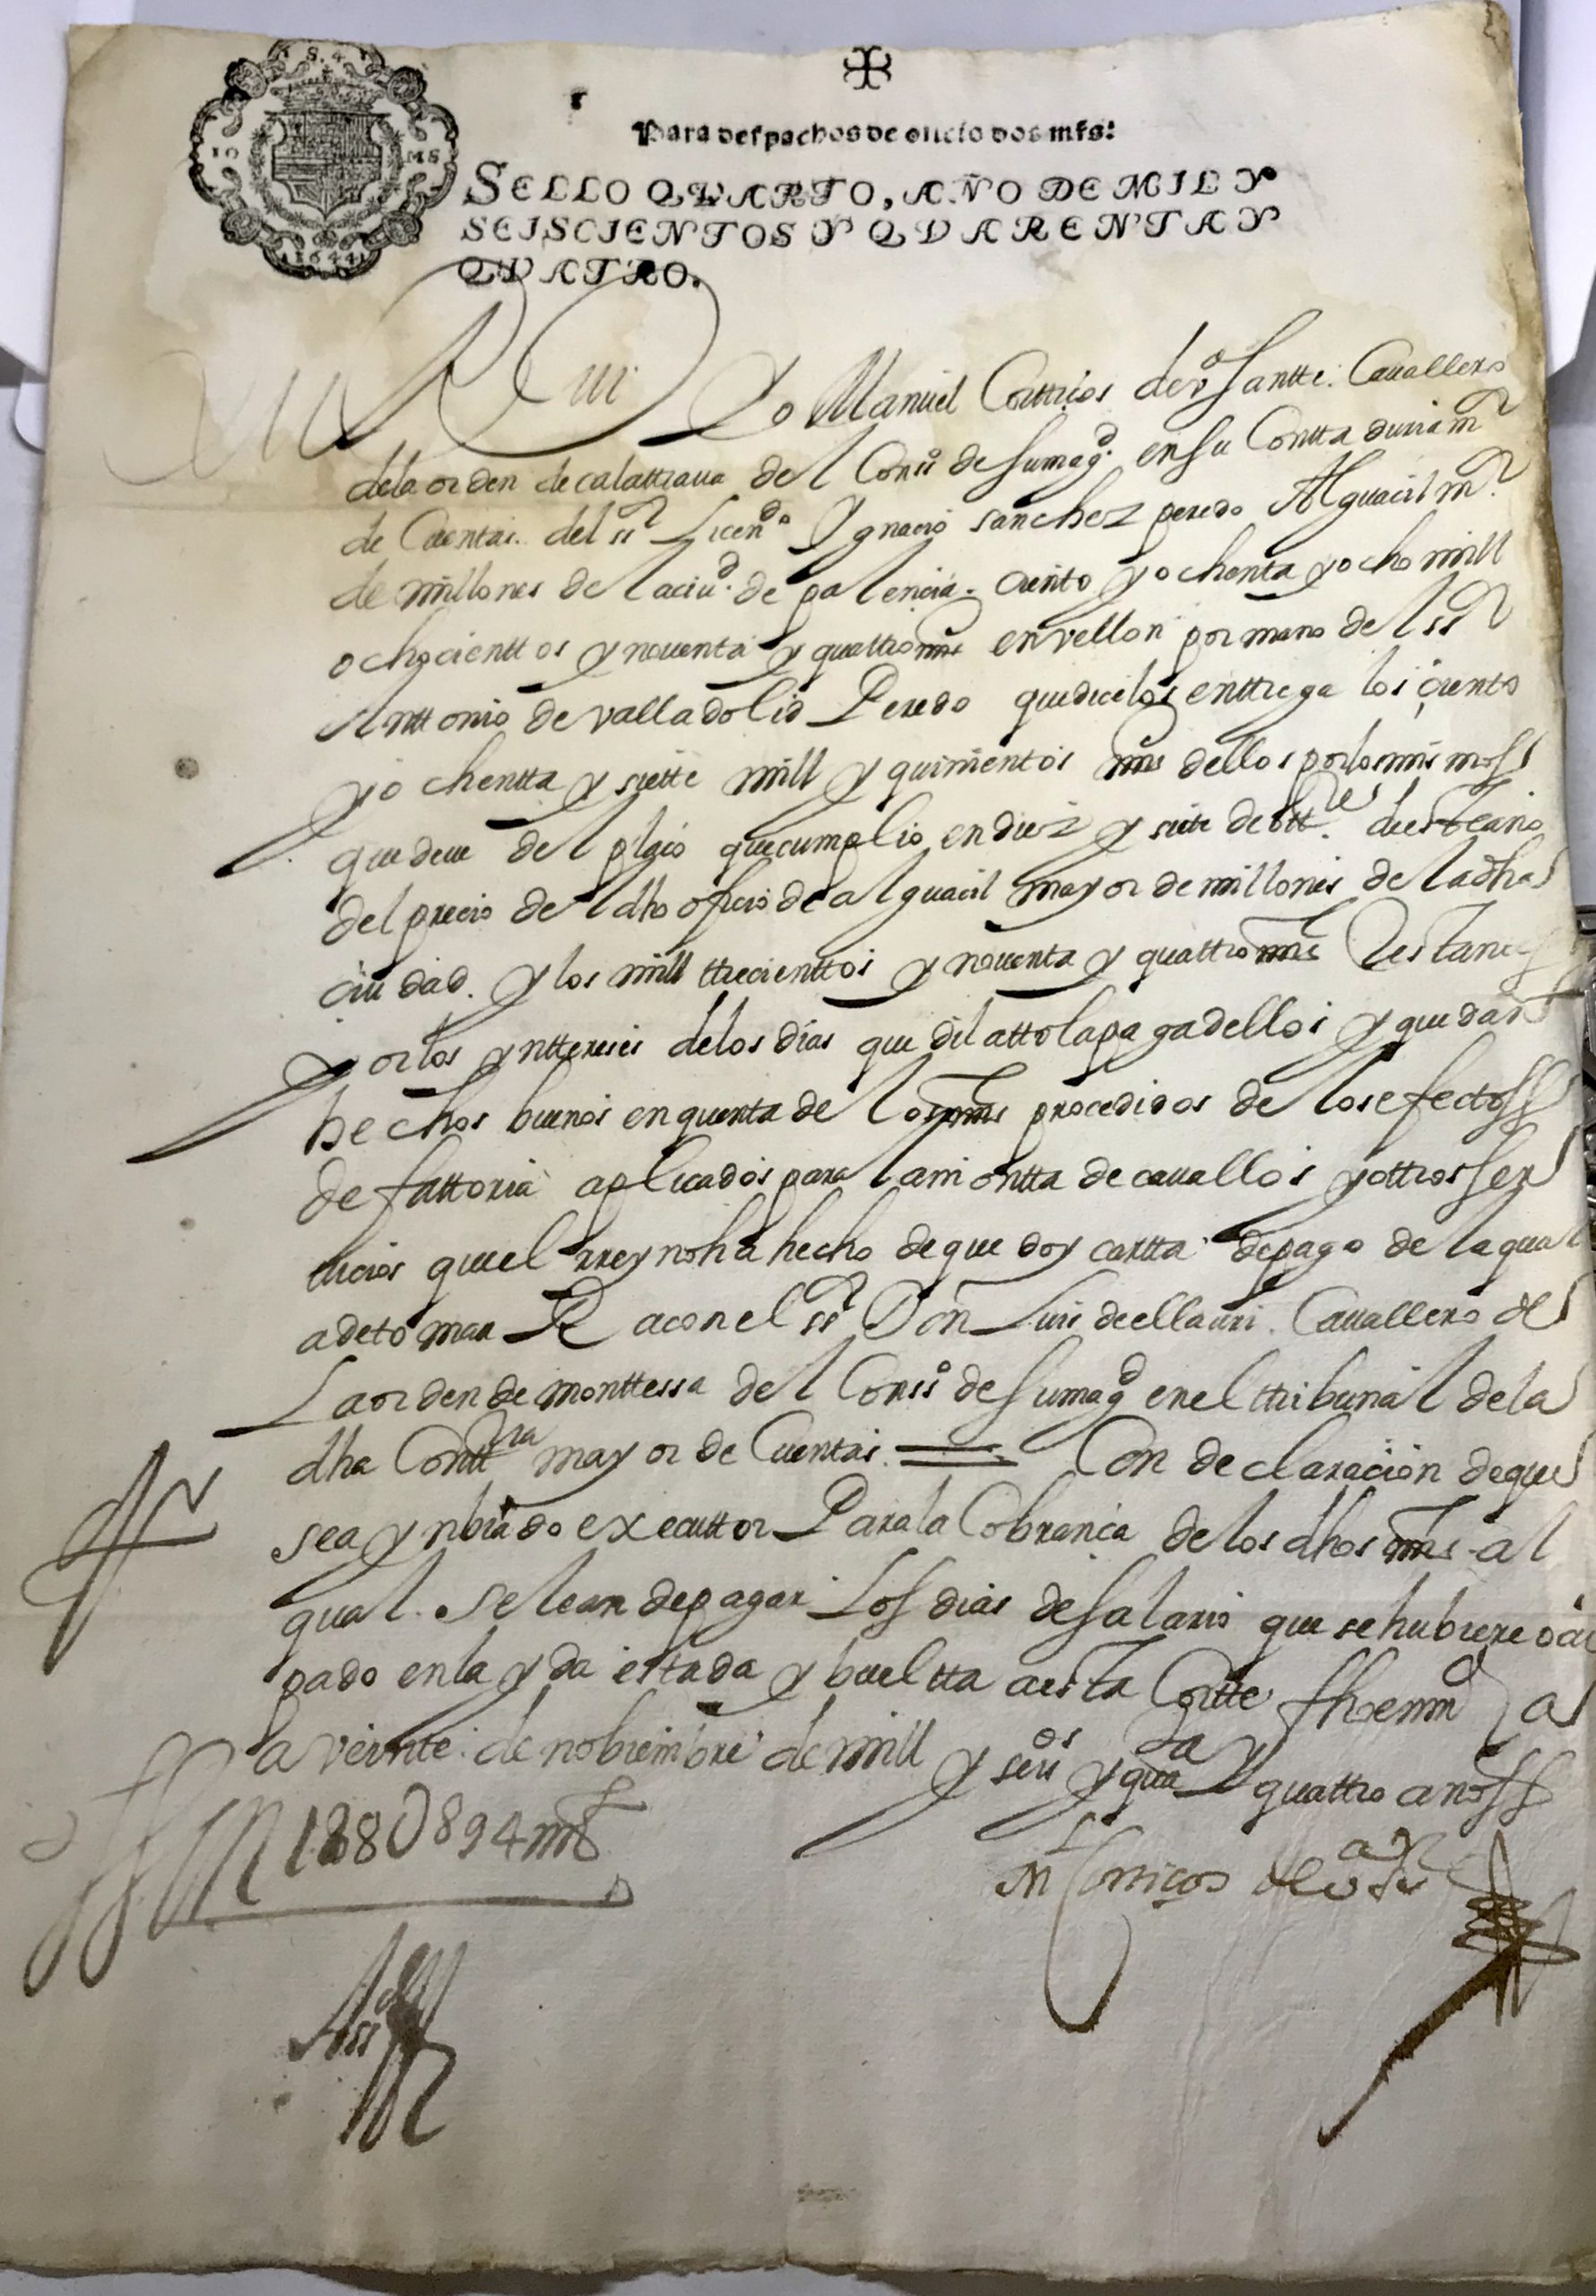 S. 4
10 MS
1644
Para despachos de oficio dos mrs:
SELLO QVARTO, AÑO DE MIL Y
SEISCIENTOS Y QVARENTA Y
QVATRO.
Yo Manuel Corttiços de Vª santte. Cauallero
dela orden de calattraua del Consº de su magd. en su Conttaduria mr
de Cuentas. del sr Licendo Ygnacio sanchez peredo Alguacil mr.
de millones de la ciud. de palencia. ciento y ochenta y ocho mill
ochocienttos y nouenta y quattro mrs en vellon por mano del sr
Anttonio de valladolid Peredo que dice los enttrega los ciento
y ochentta y siette mill y quinientos mrs dellos por los mismos
que deue del plaço que cumplio en diez y siete de ottre. deeste año
del precio del dho oficio de alguacil mayor de millones de la dha
ciudad. y los mill ttrecienttos y nouenta y quattro mrs Restantes
por los ynttereses delos dias que dilatto la paga dellos y quedan
hechos buenos en quenta de los mrs procedidos de los efectos
de fattoria aplicados para la montta de cauallos y ottros ser
uicios quel rreyno ha hecho de que doy cartta de pago de la qual
a de tomar Raçon el sr Don Luis de ellauri. Cauallero de
La orden de monttessa del Conssº de su magd en el ttribunal dela
dha Conttra mayor de Cuentas. Con declaracion de que
se a ynbiado executtor Para la Cobrança de los dhos mrs al
qual. se le an de pagar Los dias de salario que se hubiere ocu
pado en la yda estada y bueltta a esta Cortte fho en md
a veinte de nobiembre de mill y seisos y quata y quattro años
188U894 mrs
M Corticos de Vª